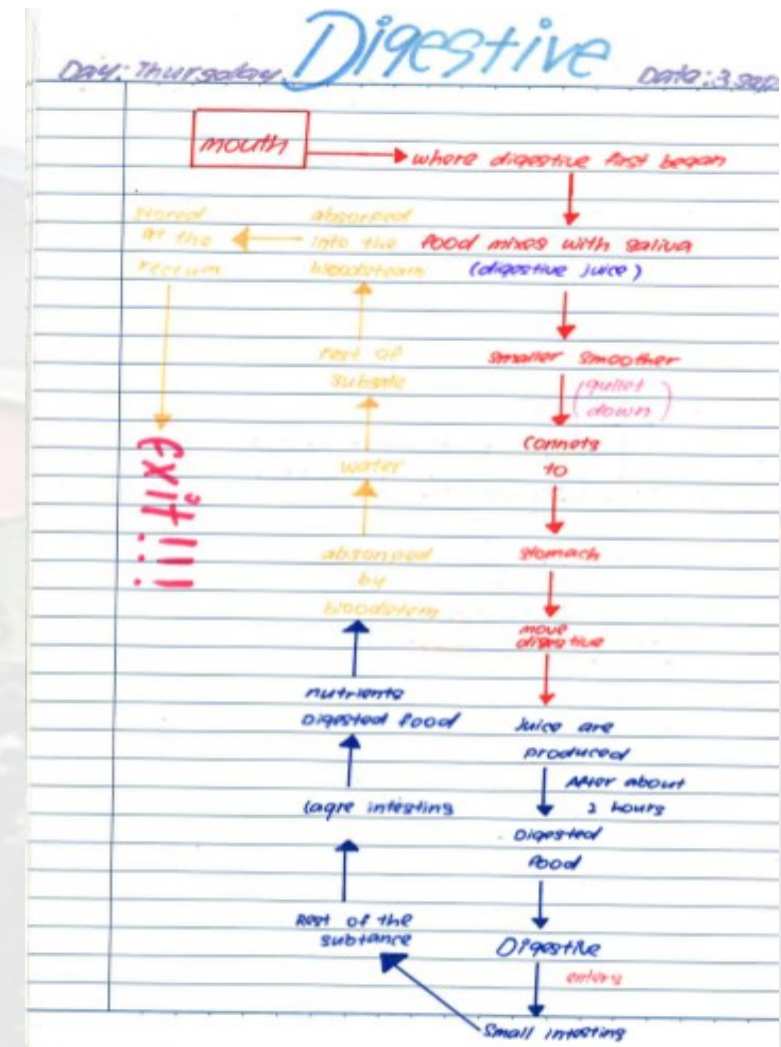 Digestive
Day: Thursday
Date: 3 sep
mouth
where digestive first began
food mixes with saliva
(digestive juice)
smaller smoother
(gullet
down)
Connets
to
stomach
move
digestive
Juice are
produced
After about
hours
Digested
food
Digestive
enters
Small intesting
Rest of the
subtance
laqre intesting
nutrients
Digested food
absorped
by
bloodstem
water
rest of
absorped
into the
at the
rectum
exit!!!